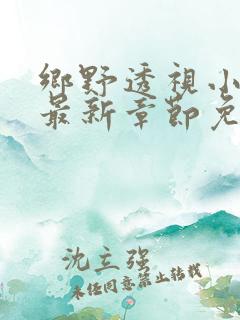 鄉野透視小
最新章節免
沈立强
未经同意禁止转载